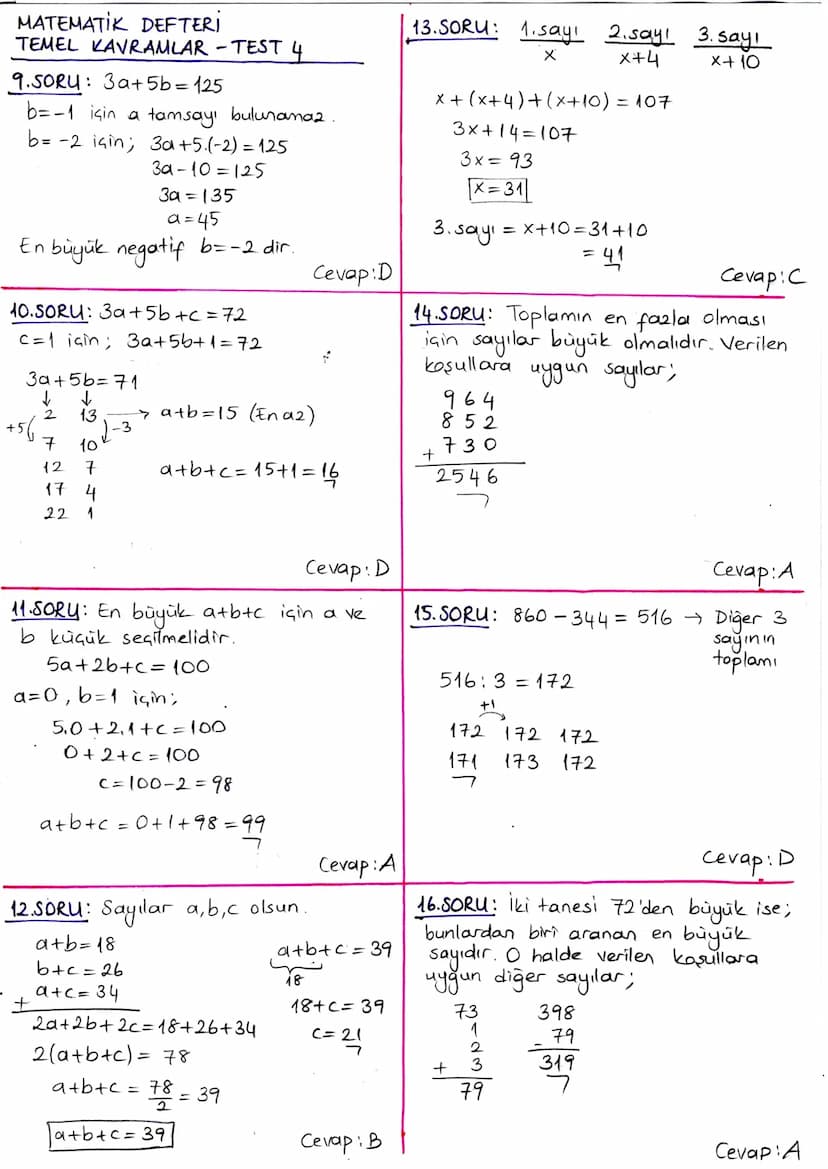 MATEMATİK DEFTERİ
TEMEL KAVRAMLAR - TEST 4
9.SORU: 3a+5b=125
b=-1 için a tamsayı bulunamaz.
b= -2 için; 3a+5.(-2)=125
3a-10=125
3a=135
a=45
En büyük negatif b=-2 dir.
Cevap:D
10.SORU: 3a+5b+c=72
c=1 için; 3a+5b+1=72
3a+5b=71
↓ ↓
+5 2 13 -3 → a+b=15 (En az)
7 10
12 7 a+b+c=15+1=16
17 4
22 1
Cevap:D
11.SORU: En büyük a+b+c için a ve
b küçük seçilmelidir.
5a+2b+c=100
a=0, b=1 için;
5.0+2.1+c=100
0+2+c=100
c=100-2=98
a+b+c=0+1+98=99
Cevap:A
12.SORU: Sayılar a,b,c olsun.
a+b=18
b+c=26
+ a+c=34
2a+2b+2c=18+26+34
2(a+b+c)= 78
a+b+c= 78/2 = 39
a+b+c=39
a+b+c=39
18
18+c=39
c=21
Cevap:B
13.SORU: 1.sayı 2.sayı 3.sayı
x x+4 x+10
x+(x+4)+(x+10)=107
3x+14=107
3x= 93
x=31
3.sayı = x+10=31+10
= 41
Cevap:C
14.SORU: Toplamın en fazla olması
için sayılar büyük olmalıdır. Verilen
koşullara uygun sayılar;
964
852
+ 730
2546
Cevap:A
15.SORU: 860-344=516 → Diğer 3
sayının
toplamı
516:3=172
+1
172 172 172
171 173 172
Cevap:D
16.SORU: İki tanesi 72'den büyük ise;
bunlardan biri aranan en büyük
sayıdır. O halde verilen koşullara
uygun diğer sayılar;
73 398
1 - 79
2 319
+ 3
79
Cevap:A